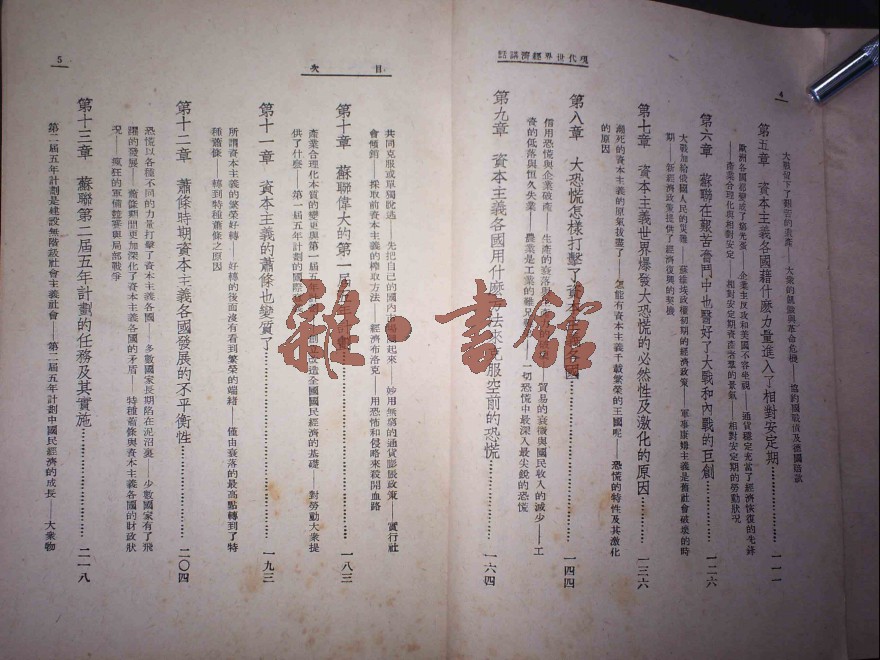 4
現代世界經濟講話
大戰留下了艱苦的遺產——大衆的飢餓與革命危機——協約國戰債及德國賠款
第五章 資本主義各國藉什麽力量進入了相對安定期⋯⋯⋯⋯一一一
歐洲各國都變成了窮光蛋——企業主反攻和美國不容坐視——通貨穩定充當了經濟恢復的先鋒
——產業合理化與相對安定——相對安定期資產者羣的景氣——相對安定期的勞動狀況
第六章 蘇聯在艱苦奮鬥中也醫好了大戰和內戰的巨創⋯⋯⋯⋯一二六
大戰加給俄國人民的災難——蘇維埃政權初期的經濟政策——軍事康姆主義是舊社會破壞的時
期——新經濟政策提供了經濟復興的契機
第七章 資本主義世界爆發大恐慌的必然性及激化的原因⋯⋯⋯⋯一三六
瀕死的資本主義的原氣拔盡了——怎能有資本主義千載繁榮的王國呢——恐慌的特性及其激化
的原因
第八章 大恐慌怎樣打擊了資本主義各國⋯⋯⋯⋯一四四
信用恐慌與企業破產——生產的衰落——貿易的衰微與國民收入的減少——工
資的低落與恒久失業——農業是工業的難兄——一切恐慌中最深入最尖銳的恐慌
第九章 資本主義各國用什麽方法來克服空前的恐慌⋯⋯⋯⋯一六四
目次
5
共同克服或單獨脫逃——先把自己的國內市場圍起來——妙用無窮的通貨膨脹政策——實行社
會傾銷——採取前資本主義的榨取方法——經濟布洛克——用恐怖和侵略來殺開血路
第十章 蘇聯偉大的第一屆五年計劃⋯⋯⋯⋯一八三
產業合理化本質的變更與第一屆五年——創立改造全國國民經濟的基礎——對勞動大衆提
供了什麽——第一屆五年計劃的國際
第十一章 資本主義的蕭條也變質了⋯⋯⋯⋯一九三
所謂資本主義的繁榮好轉——好轉的後面沒有看到繁榮的端緒——僅由衰落的最高點轉到了特
種蕭條——轉到特種蕭條之原因
第十二章 蕭條時期資本主義各國發展的不平衡性⋯⋯⋯⋯二〇四
恐慌以各種不同的力量打擊了資本主義各國——多數國家長期陷在泥沼裏——少數國家有了飛
躍的發展——蕭條期間更加深化了資本主義各國的矛盾——特種蕭條與資本主義各國的財政狀
況——瘋狂的軍備競賽與局部戰爭
第十三章 蘇聯第二屆五年計劃的任務及其實施⋯⋯⋯⋯二一八
第二屆五年計劃是建設無階級社會主義社會——第二屆五年計劃中國民經濟的成長——大衆物
雜·書館